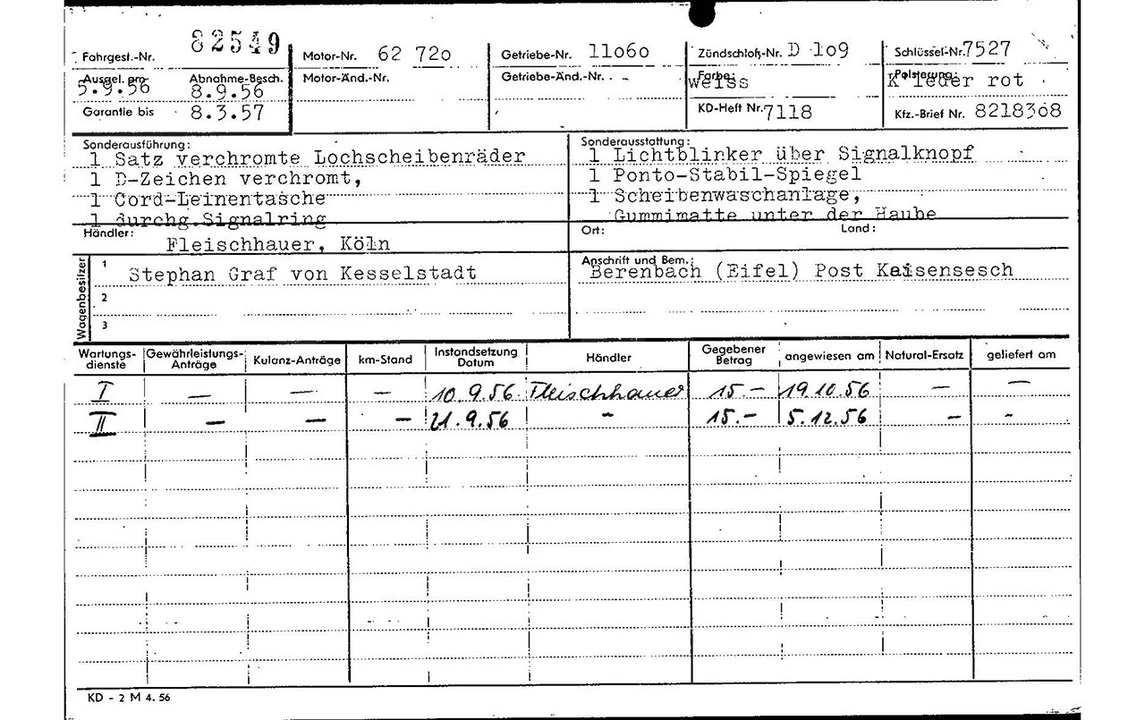 Fahrgest.-Nr. 82549 Motor-Nr. 62 720 Getriebe-Nr. 11060 Zündschloß-Nr. D 109 Schlüssel-Nr. 7527
Ausgel. am Abnahme-Besch. Motor-Änd.-Nr. Getriebe-Änd.-Nr. Farbe: Polsterung:
5.9.56 8.9.56 weiss K'leder rot
Garantie bis 8.3.57 KD-Heft Nr. 7118 Kfz.-Brief Nr. 8218368
Sonderausführung: Sonderausstattung:
1 Satz verchromte Lochscheibenräder 1 Lichtblinker über Signalknopf
1 D-Zeichen verchromt, 1 Ponto-Stabil-Spiegel
1 Cord-Leinentasche 1 Scheibenwaschanlage,
1 durchg.Signalring Gummimatte unter der Haube
Händler: Fleischhauer, Köln Ort: Land:
Wagenbesitzer Anschrift und Bem.:
1 Stephan Graf von Kesselstadt Berenbach (Eifel) Post Kaisensesch
2
3
Wartungs-dienste Gewährleistungs-Anträge Kulanz-Anträge km-Stand Instandsetzung Datum Händler Gegebener Betrag angewiesen am Natural-Ersatz geliefert am
I — — — 10.9.56 Fleischhauer 15.— 19.10.56 — —
II — — — 21.9.56 - 15.— 5.12.56 — -
KD - 2 M 4. 56